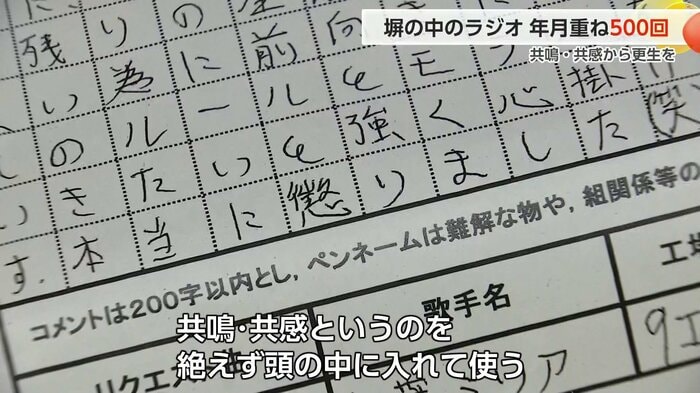 塀の中のラジオ 年月重ね500回
共鳴・共感から更生を
残りの
い為に前向き
のルールをモラ
いきたいと強く心掛け
す.本当に懲りました(笑)
コメントは200字以内とし,ペンネームは難解な物や,組関係等の
リクエスト 歌手名 工場
9工
共鳴・共感というのを
絶えず頭の中に入れて使う